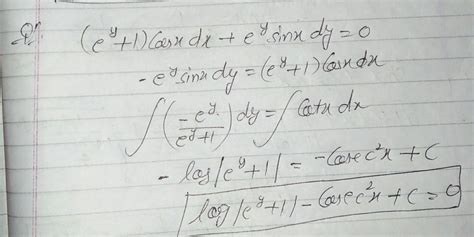 (e^y+1) Cosx dx + e^y sinx dy = 0
- e^y sinx dy = (e^y+1) Cosx dx
∫ (-e^y/e^y+1) dy = ∫ Cotx dx
- log|e^y+1| = -Cosec²x + C
log|e^y+1| - Cosec²x + C = 0